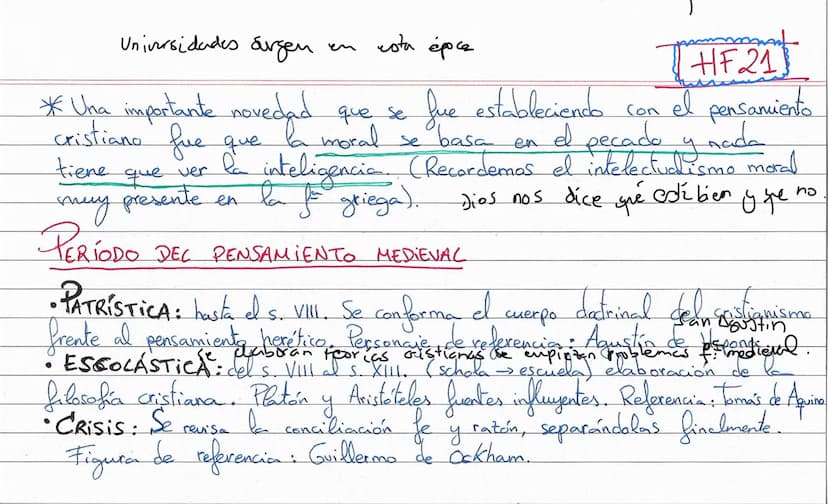 Universidades surgen en esta época
HF21
* Una importante novedad que se fue estableciendo con el pensamiento
cristiano fue que la moral se basa en el pecado y nada
tiene que ver la inteligencia. (Recordemos el intelectualismo moral
muy presente en la fª griega). Dios nos dice qué está bien y que no.
PERÍODO DEL PENSAMIENTO MEDIEVAL
• PATRÍSTICA: hasta el s. VIII. Se conforma el cuerpo doctrinal del cristianismo
San Agustín
frente al pensamiento herético. Personaje de referencia: Agustín de
se elaboran teorías cristianas se empiezan problemas f. medieval.
• ESCOLÁSTICA: del s. VIII al s. XIII. (schola → escuela) elaboración de la
filosofía cristiana. Platón y Aristóteles fuentes influyentes. Referencia: Tomás de Aquino
• CRISIS: Se revisa la conciliación fe y razón, separándolas finalmente.
Figura de referencia: Guillermo de Ockham.